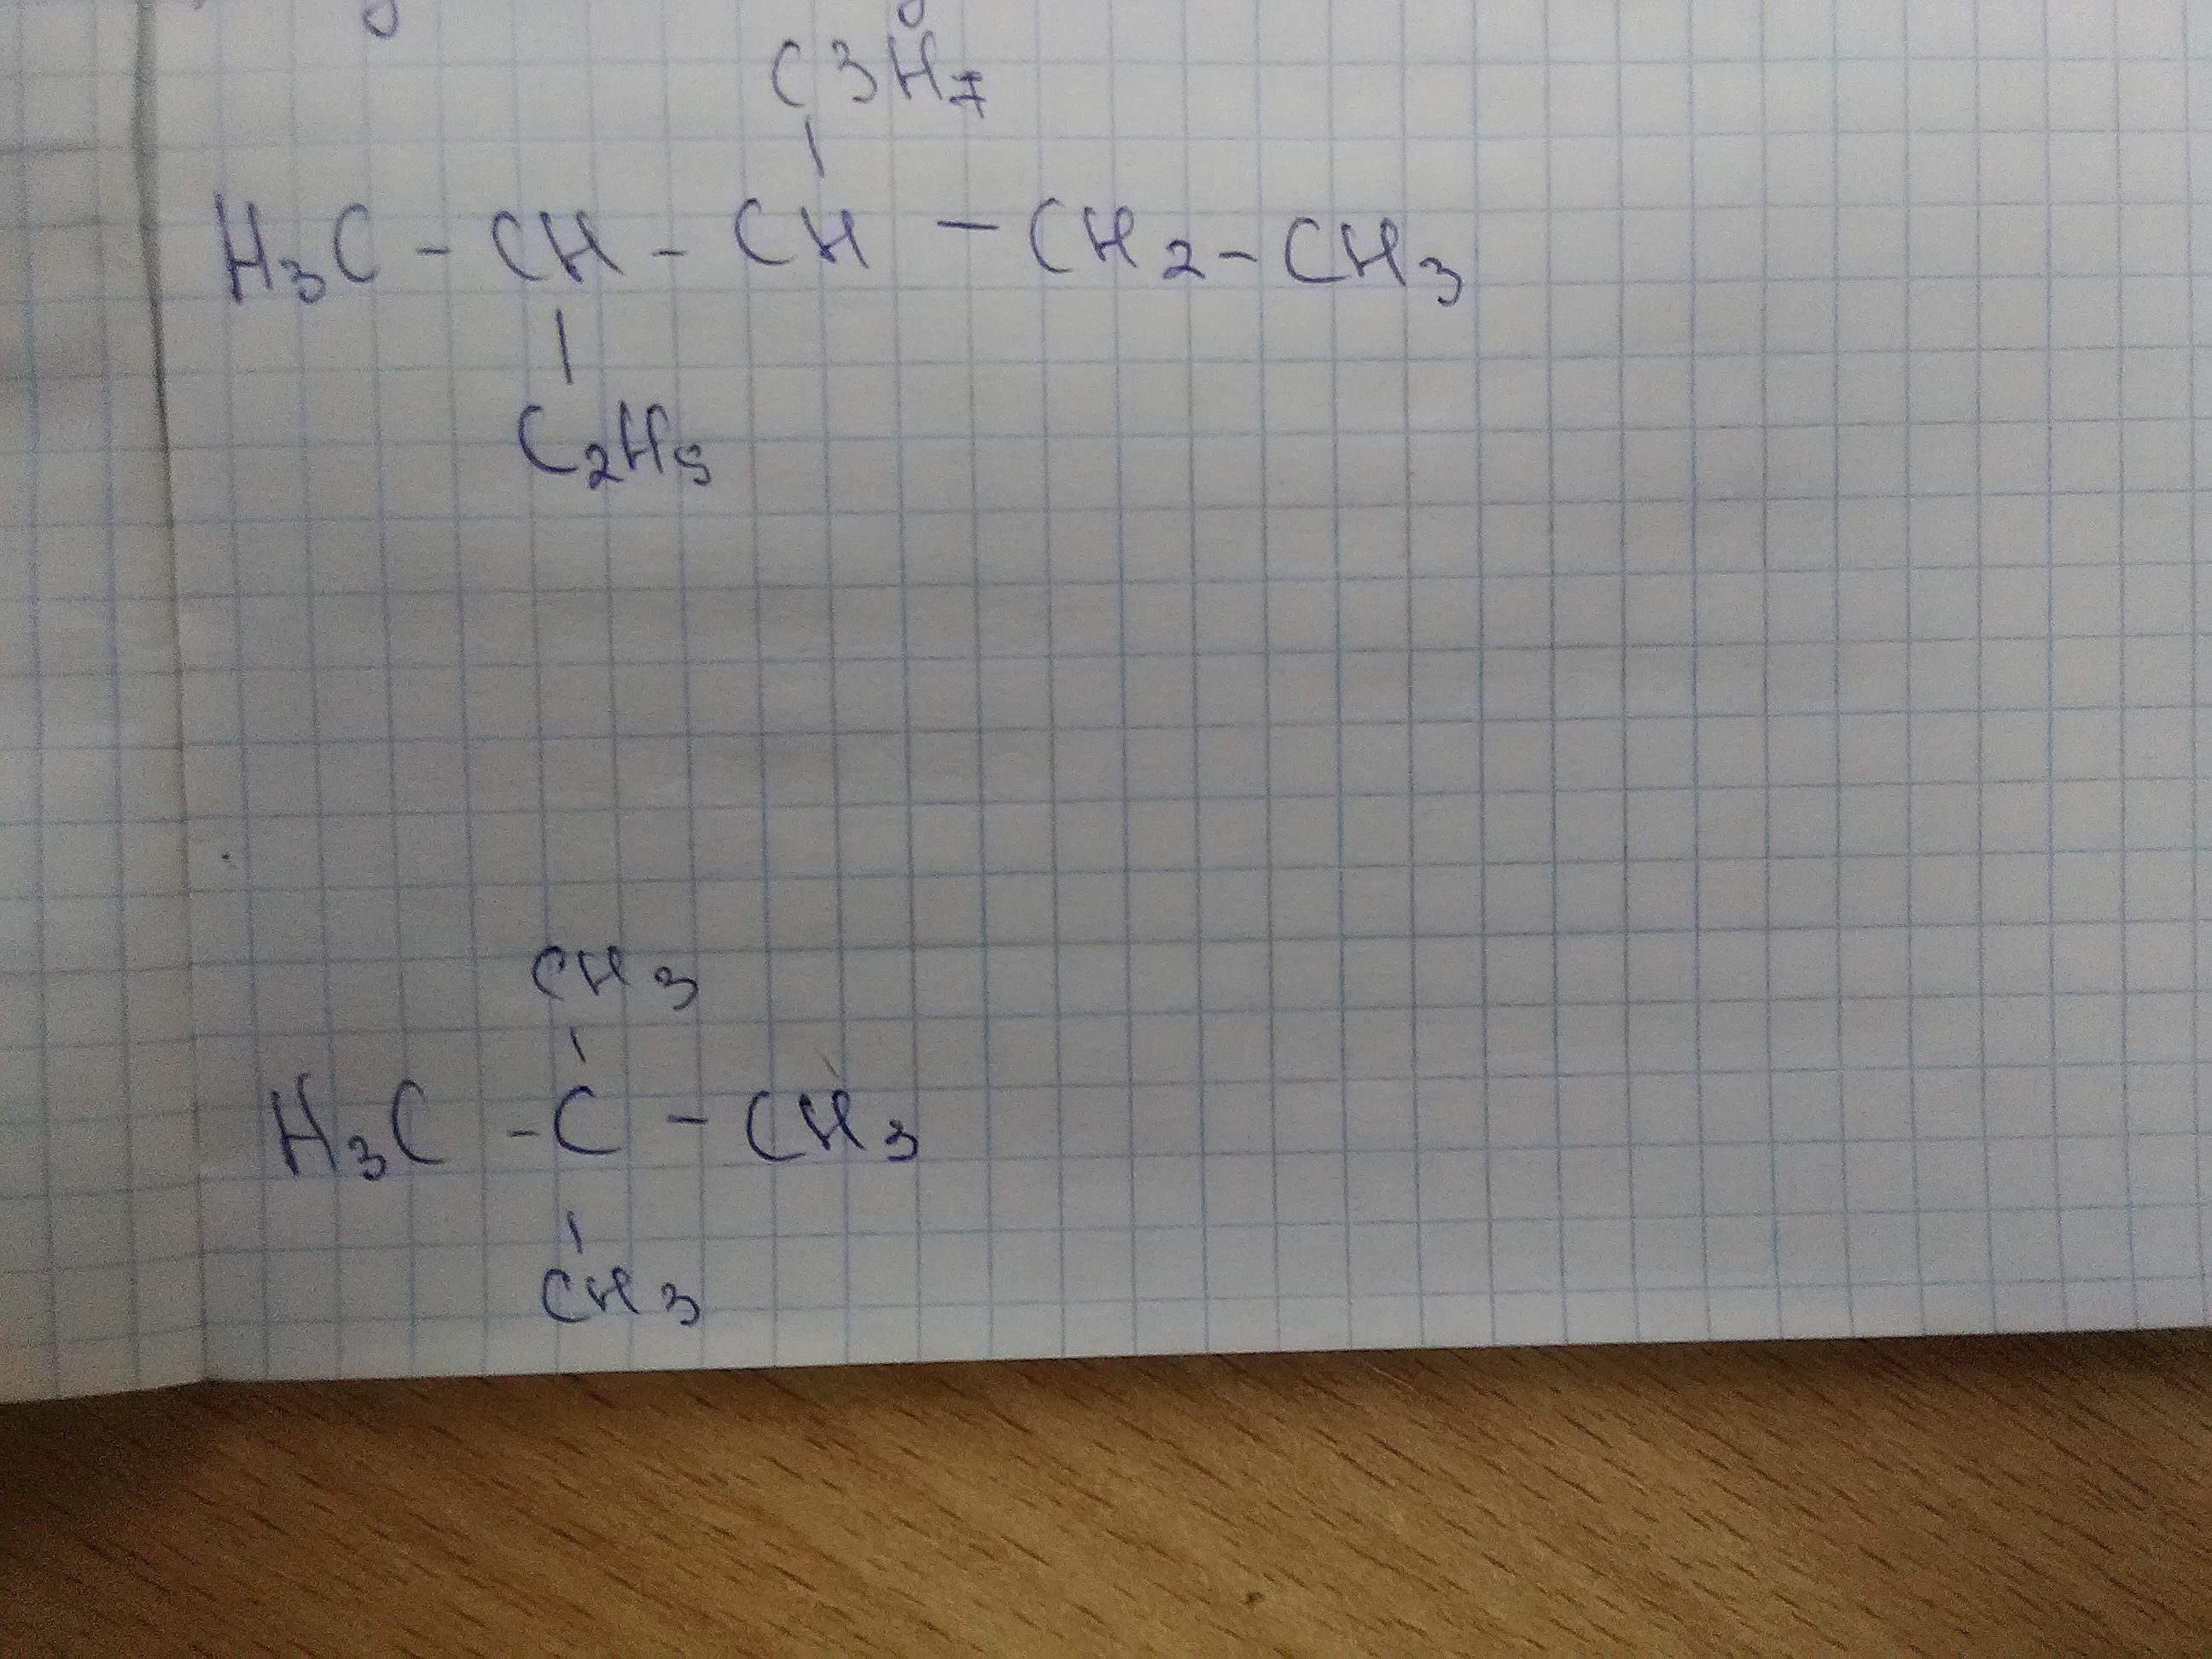 C3H7
H3C - CH - CH - CH2 - CH3
C2H5
CH3
H3C - C - CH3
CH3